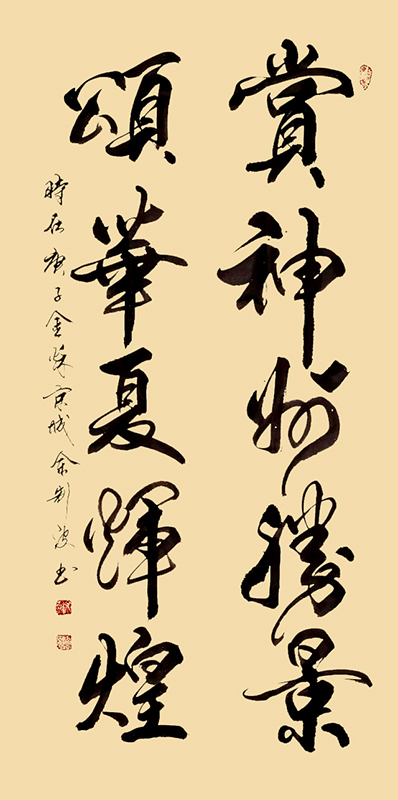 賞神州勝景
頌華夏輝煌
時在庚子金秋京城余新波書